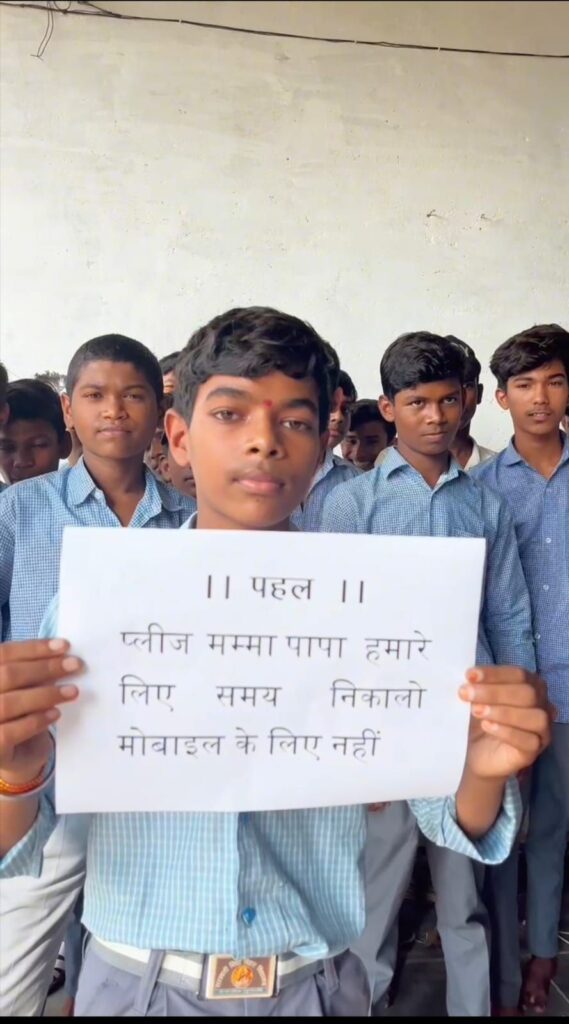 ।। पहल ।।
प्लीज मम्मा पापा हमारे
लिए समय निकालो
मोबाइल के लिए नहीं